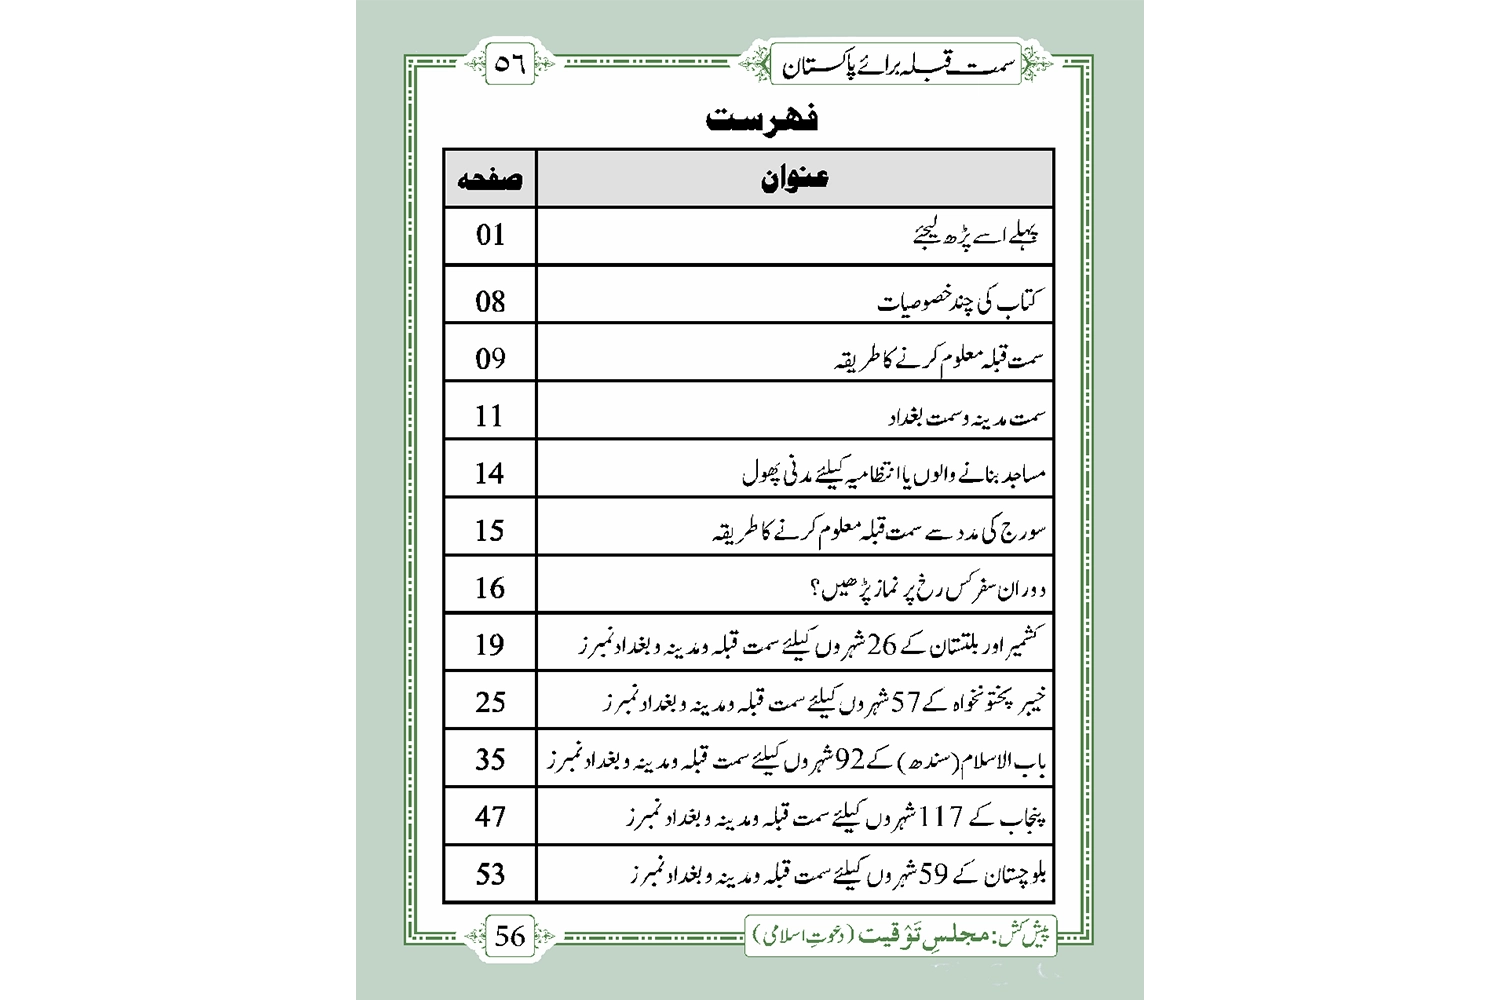 سمت قبلہ برائے پاکستان ٥٦
فہرست
عنوان صفحہ
پہلے اسے پڑھ لیجئے 01
کتاب کی چند خصوصیات 08
سمت قبلہ معلوم کرنے کا طریقہ 09
سمت مدینہ و سمت بغداد 11
مساجد بنانے والوں یا انتظامیہ کیلئے مدنی پھول 14
سورج کی مدد سے سمت قبلہ معلوم کرنے کا طریقہ 15
دوران سفر کس رخ پر نماز پڑھیں؟ 16
کشمیر اور بلتستان کے 26 شہروں کیلئے سمت قبلہ و مدینہ و بغداد نمبرز 19
خیبر پختونخواہ کے 57 شہروں کیلئے سمت قبلہ و مدینہ و بغداد نمبرز 25
باب الاسلام (سندھ) کے 92 شہروں کیلئے سمت قبلہ و مدینہ و بغداد نمبرز 35
پنجاب کے 117 شہروں کیلئے سمت قبلہ و مدینہ و بغداد نمبرز 47
بلوچستان کے 59 شہروں کیلئے سمت قبلہ و مدینہ و بغداد نمبرز 53
پیش کش: مجلسِ تَوْقیت (دعوتِ اسلامی) 56